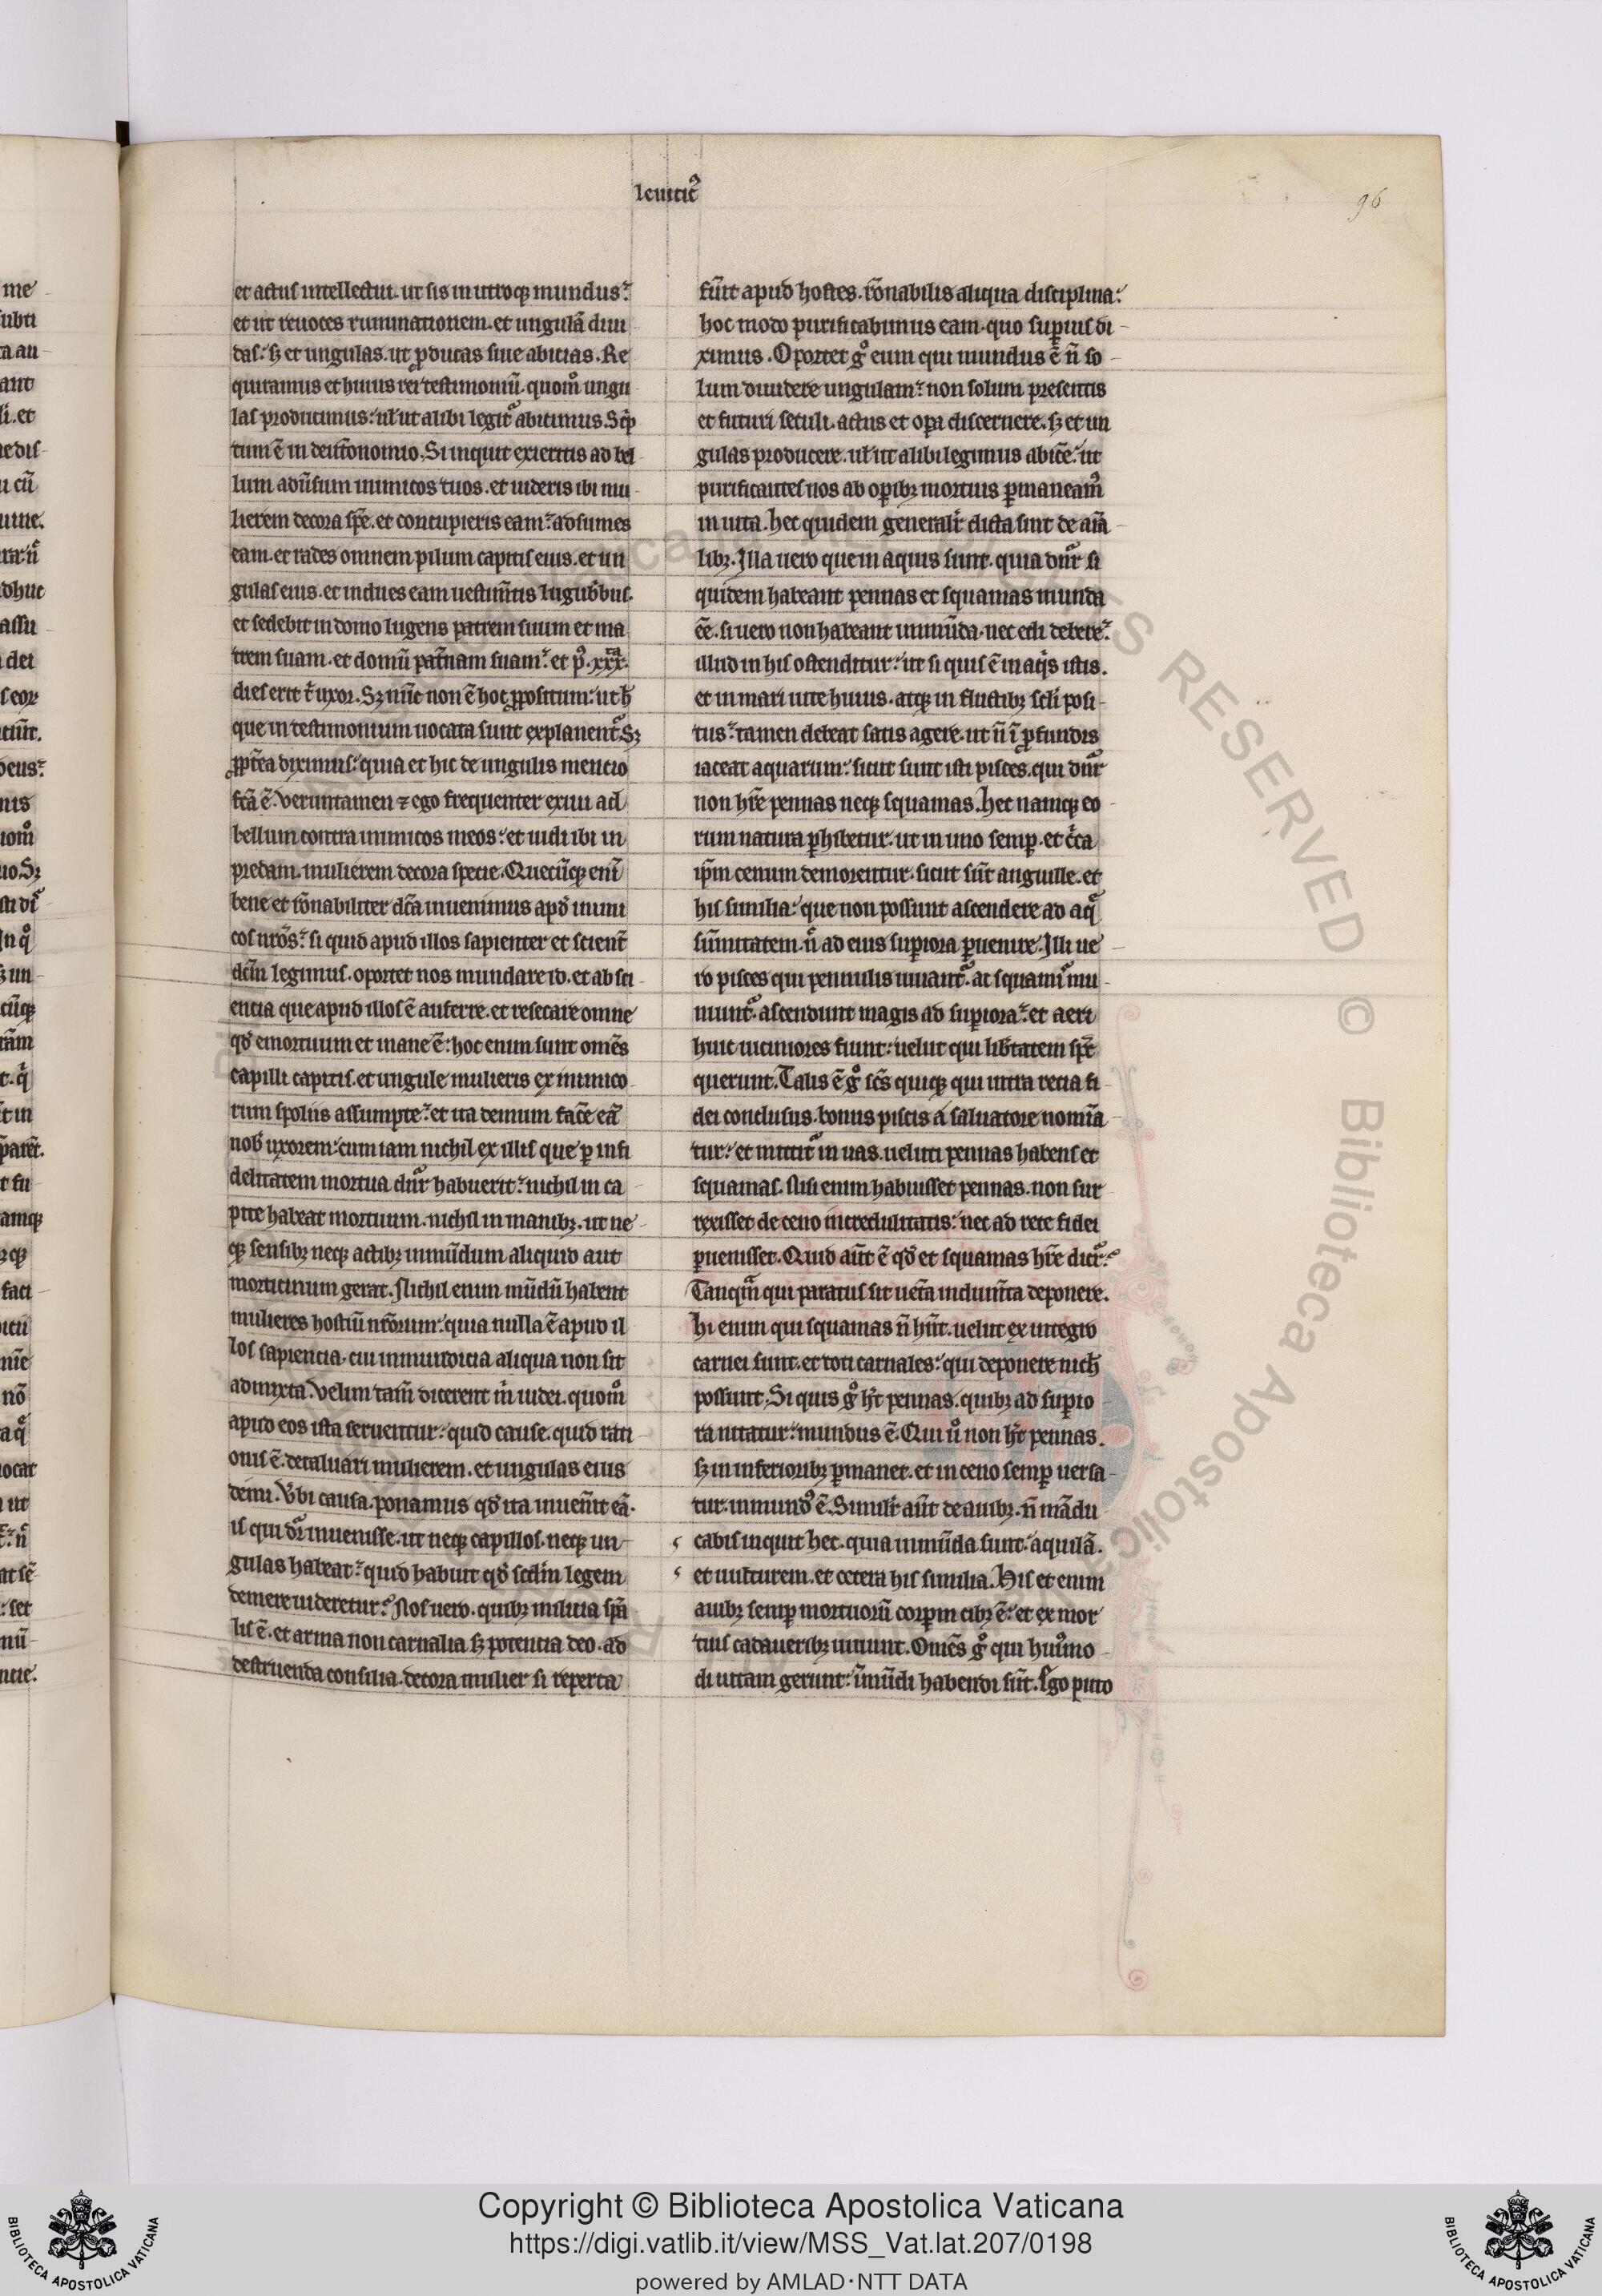 leuitic᷒
96
et actus intellectui. ut sis in utroq; mundus.
et ut reuoces ruminationem. et ungulā diui
das. sꝫ et ungulas. ut ꝓducas siue abicias. Re
quiramus et huius rei testimoniū. quom̊ ungu
las producimus. ul' ut alibi legit᷑ abicimus. Sc'p
tum ē in deut'onomio. Si inquit exieritis ad bel
lum adū̄sum inimicos tuos. et uideris ibi mu
lierem decora sp̄e. et concupieris eam. adsumes
eam. et rades omnem pilum capitis eius. et un
gulas eius. et indues eam uestim̄tis lugub'bus.
et sedebit in domo lugens patrem suum et ma
trem suam. et domū pat'nam suam. et p᷒ .xxx.ͣ
dies erit t' uxor. Sꝫ nūc non ē hoc ꝓpositum. ut h̄
que in testimonium uocata sunt explanent᷑. Sꝫ
ꝓpt'ea diximus. quia et hic de ungulis mencio
fc̄a ē. Veruntamen ⁊ ego frequenter exiui ad
bellum contra inimicos meos. et uidi ibi in
predam. mulierem decora specie. Quecūq; eni
bene et r̄onabiliter dc̄a inuenimus apd' inimi
cos nr̄os. si quid apud illos sapienter et scient'
dc̄m legimus. oportet nos mundare id. et ab sci
entia que apud illos ē auferre. et resecare omne
qd' emortuum et inane ē. hoc enim sunt om̄es
capilli capitis. et ungule mulieris ex inimico
rum spoliis assumpte. et ita demum fac'e eā
nob' uxorem. cum iam nichil ex illis que ꝑ infi
delitatem mortua dn̄r habuerit. nichil in ca
pite habeat mortuum. nichil in manibꝫ. ut ne
q; sensibꝫ neq; actibꝫ inmūdum aliquid aut
morticinum gerat. Nichil enim mūdū habent
mulieres hostiū nr̄orum. quia nulla ē apud il
los sapiencia. cui inmundicia aliqua non sit
admixta. Velim tam̄ dicerent m̄ iudei. quom̊
apud eos ista seruentur. quid cause. quid rati
onis ē. decaluari mulierem. et ungulas eius
demi. Vbi causa. ponamus qd' ita inuen'it eā.
is qui dr̄ inuenisse. ut neq; capillos. neq; un
gulas habeat. quid habuit qd' scd̄m legem
demere uideretur. Nos uero. quibꝫ milicia sp̄a
lis ē. et arma non carnalia sꝫ potentia deo. ad
destruenda consilia. decora mulier si reperta
fūit apud hostes. r̄onabilis aliqua disciplina.
hoc modo purificabimus eam. quo suꝑius di
ximus. Oportet g̊ eum qui mundus ē n̄ so
lum diuidere ungulam. non solum presentis
et futuri seculi. actus et oꝑa discernere. sꝫ et un
gulas producere. ul' ut alibi legimus abic'e. ut
purificantes nos ab oꝑibꝫ mortuis ꝑmaneam᷒
in uita. hec quidem general'r dicta sint de aīa
libꝫ. Illa uero que in aquis sunt. quia dn̄r si
quidem habeant pennas et squamas munda
ēe. si uero non habeant inmūda. nec edi debere.
illud in his ostenditur. ut si quis ē in aq's istis.
et in mari uite huius. atq; in fluctibꝫ scl'i posi
tus. tamen debeat satis agere. ut n̄ ī ꝓfundis
iaceat aquarum. sicut sunt isti pisces. qui dn̄r
non hr̄e pennas neq; squamas. Hec namq; eo
rum natura ꝑhibetur. ut in uno semꝑ. et c'ca
ip̄m cenum demorentur. sicut sūt anguille. et
his similia. que non possunt ascendere ad aq̄
sūmitatem. n̄ ad eius suꝑiora ꝑuenire. Illi ue
ro pisces qui pennulis iuuant᷑. ac squamis mu
niunt᷑. ascendunt magis ad suꝑiora. et aeri
huic uiciniores fiunt. uelut qui lib'tatem sp̄c
querunt. Talis ē g̊ sc̄s quisq; qui intra recia fi
dei conclusus. bonus piscis a saluatore nomīa
tur. et mittit᷑ in uas. ueluti pennas habens et
squamas. Nisi enim habuisset pennas. non sur
rexisset de ceno incredulitatis. nec ad rete fidei
ꝑuenisset. Quid aūt ē qd' et squamas hr̄e dicit᷑.
Tanqm̄ qui paratus sit uet'a indum̄ta deponere.
Hi enim qui squamas n̄ hn̄t. uelut ex integro
carnei sunt. et toti carnales. qui deponere nich'
possunt. Si quis g̊ h't pennas. quibꝫ ad suꝑio
ra nitatur. mundus ē. Qui ů non h't pennas.
sꝫ in inferioribꝫ ꝑmanet. et in ceno semꝑ uersa
tur. inmund᷒ ē. Simil'r aūt de auibꝫ. n̄ mādu
cabis inquit hec. quia inmūda sunt. aquilā.
et uulturem. et cetera his similia. His et enim
auibꝫ semꝑ mortuorū corꝑm cibꝫ ē. et ex mor
tuis cadaueribꝫ uiuunt. Om̄es g̊ qui hui᷒mo
di uitam gerunt. īmūdi habendi sūt. Ego puto
Copyright © Biblioteca Apostolica Vaticana
https://digi.vatlib.it/view/MSS_Vat.lat.207/0198
powered by AMLAD·NTT DATA
BIBLIOTECA APOSTOLICA VATICANA
BIBLIOTECA APOSTOLICA VATICANA